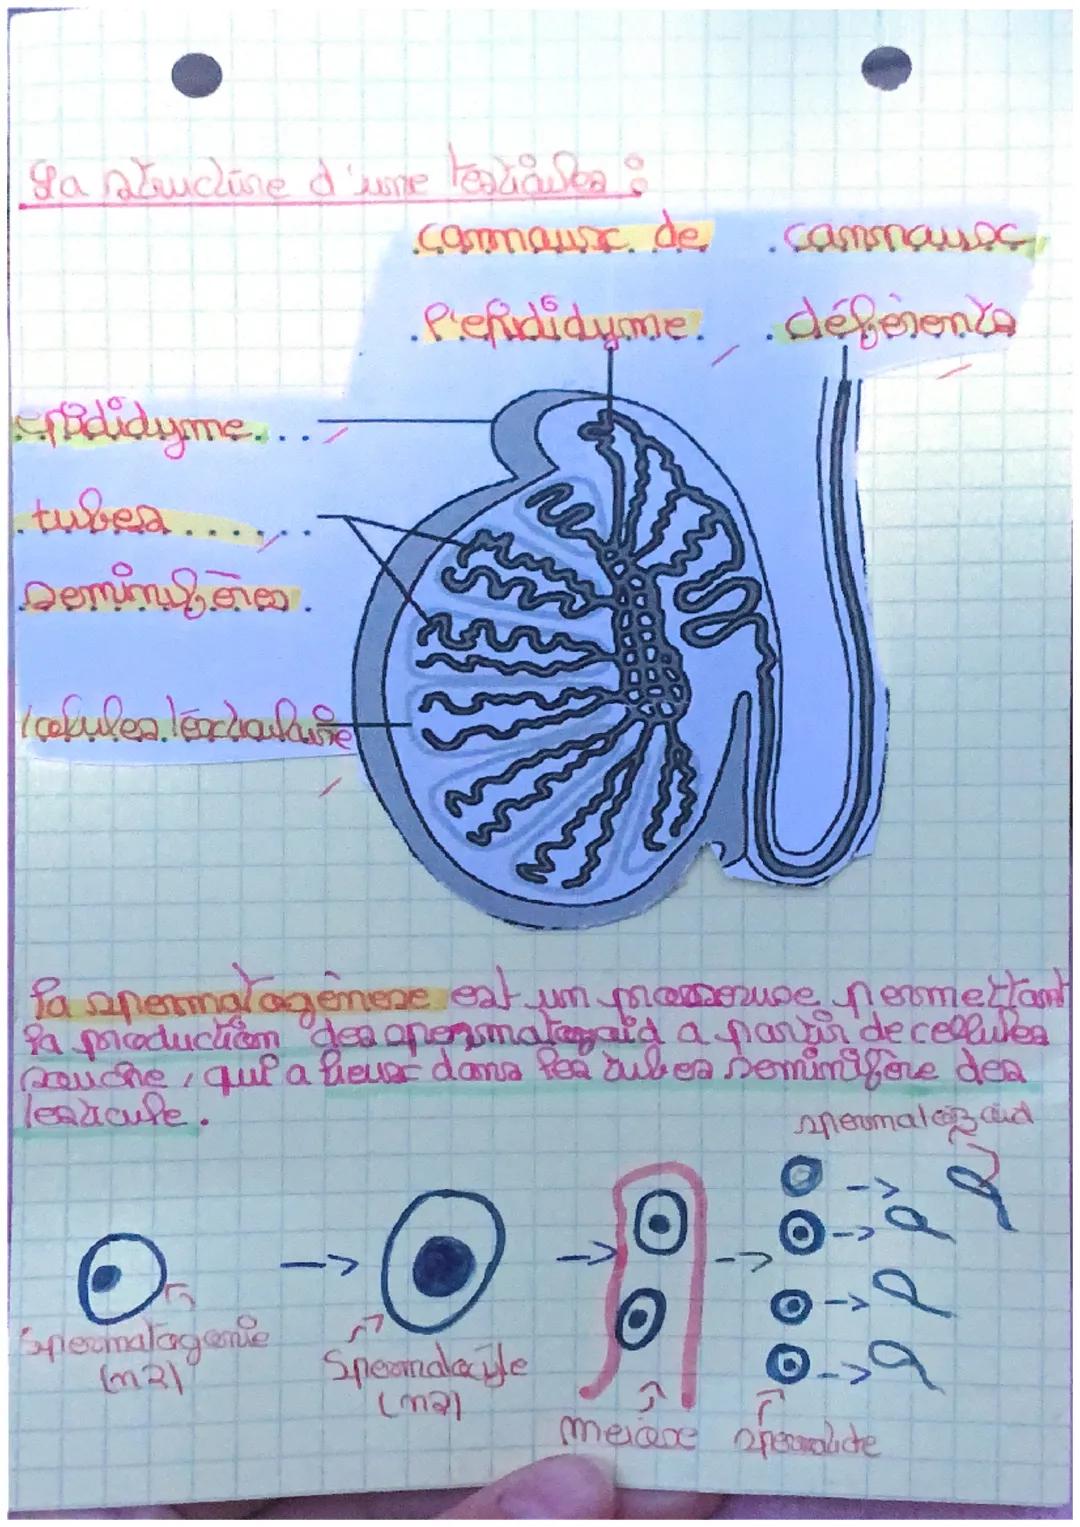 La structure d'une testicules :
cannaux de
l'epididyme.
cannaux
déférents
epididyme....
tubes......
seminifères.
celules testiculaire
la spermatogénese est un processuse permettant
la production des spermatozoid a partir de cellules
souche, qui a lieux dans les tubes seminifère des
testicule.
spermatozoid
Spermatogonie
(n2)
Spermatocyte
(n2)
meiose
spermatide